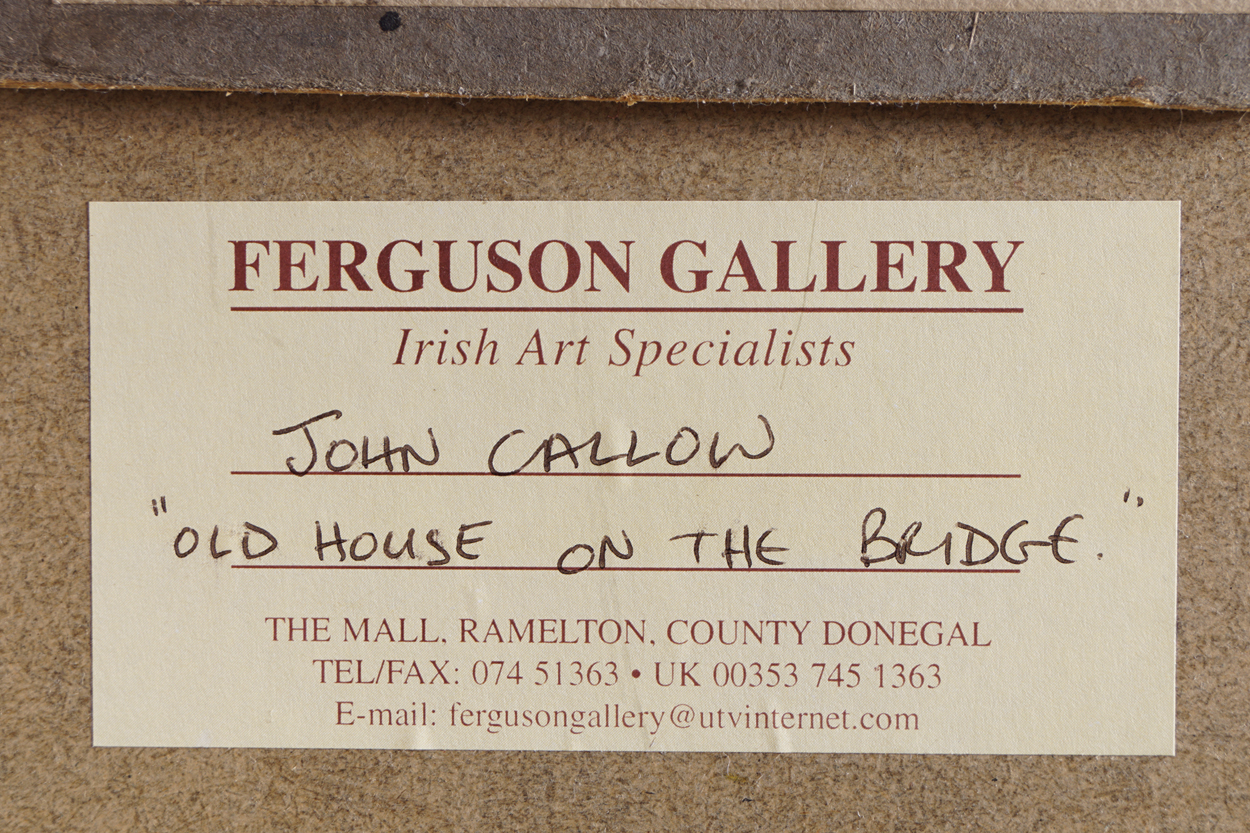 FERGUSON GALLERY
Irish Art Specialists
JOHN CALLOW
"OLD HOUSE ON THE BRIDGE."
THE MALL, RAMELTON, COUNTY DONEGAL
TEL/FAX: 074 51363 • UK 00353 745 1363
E-mail: fergusongallery@utvinternet.com